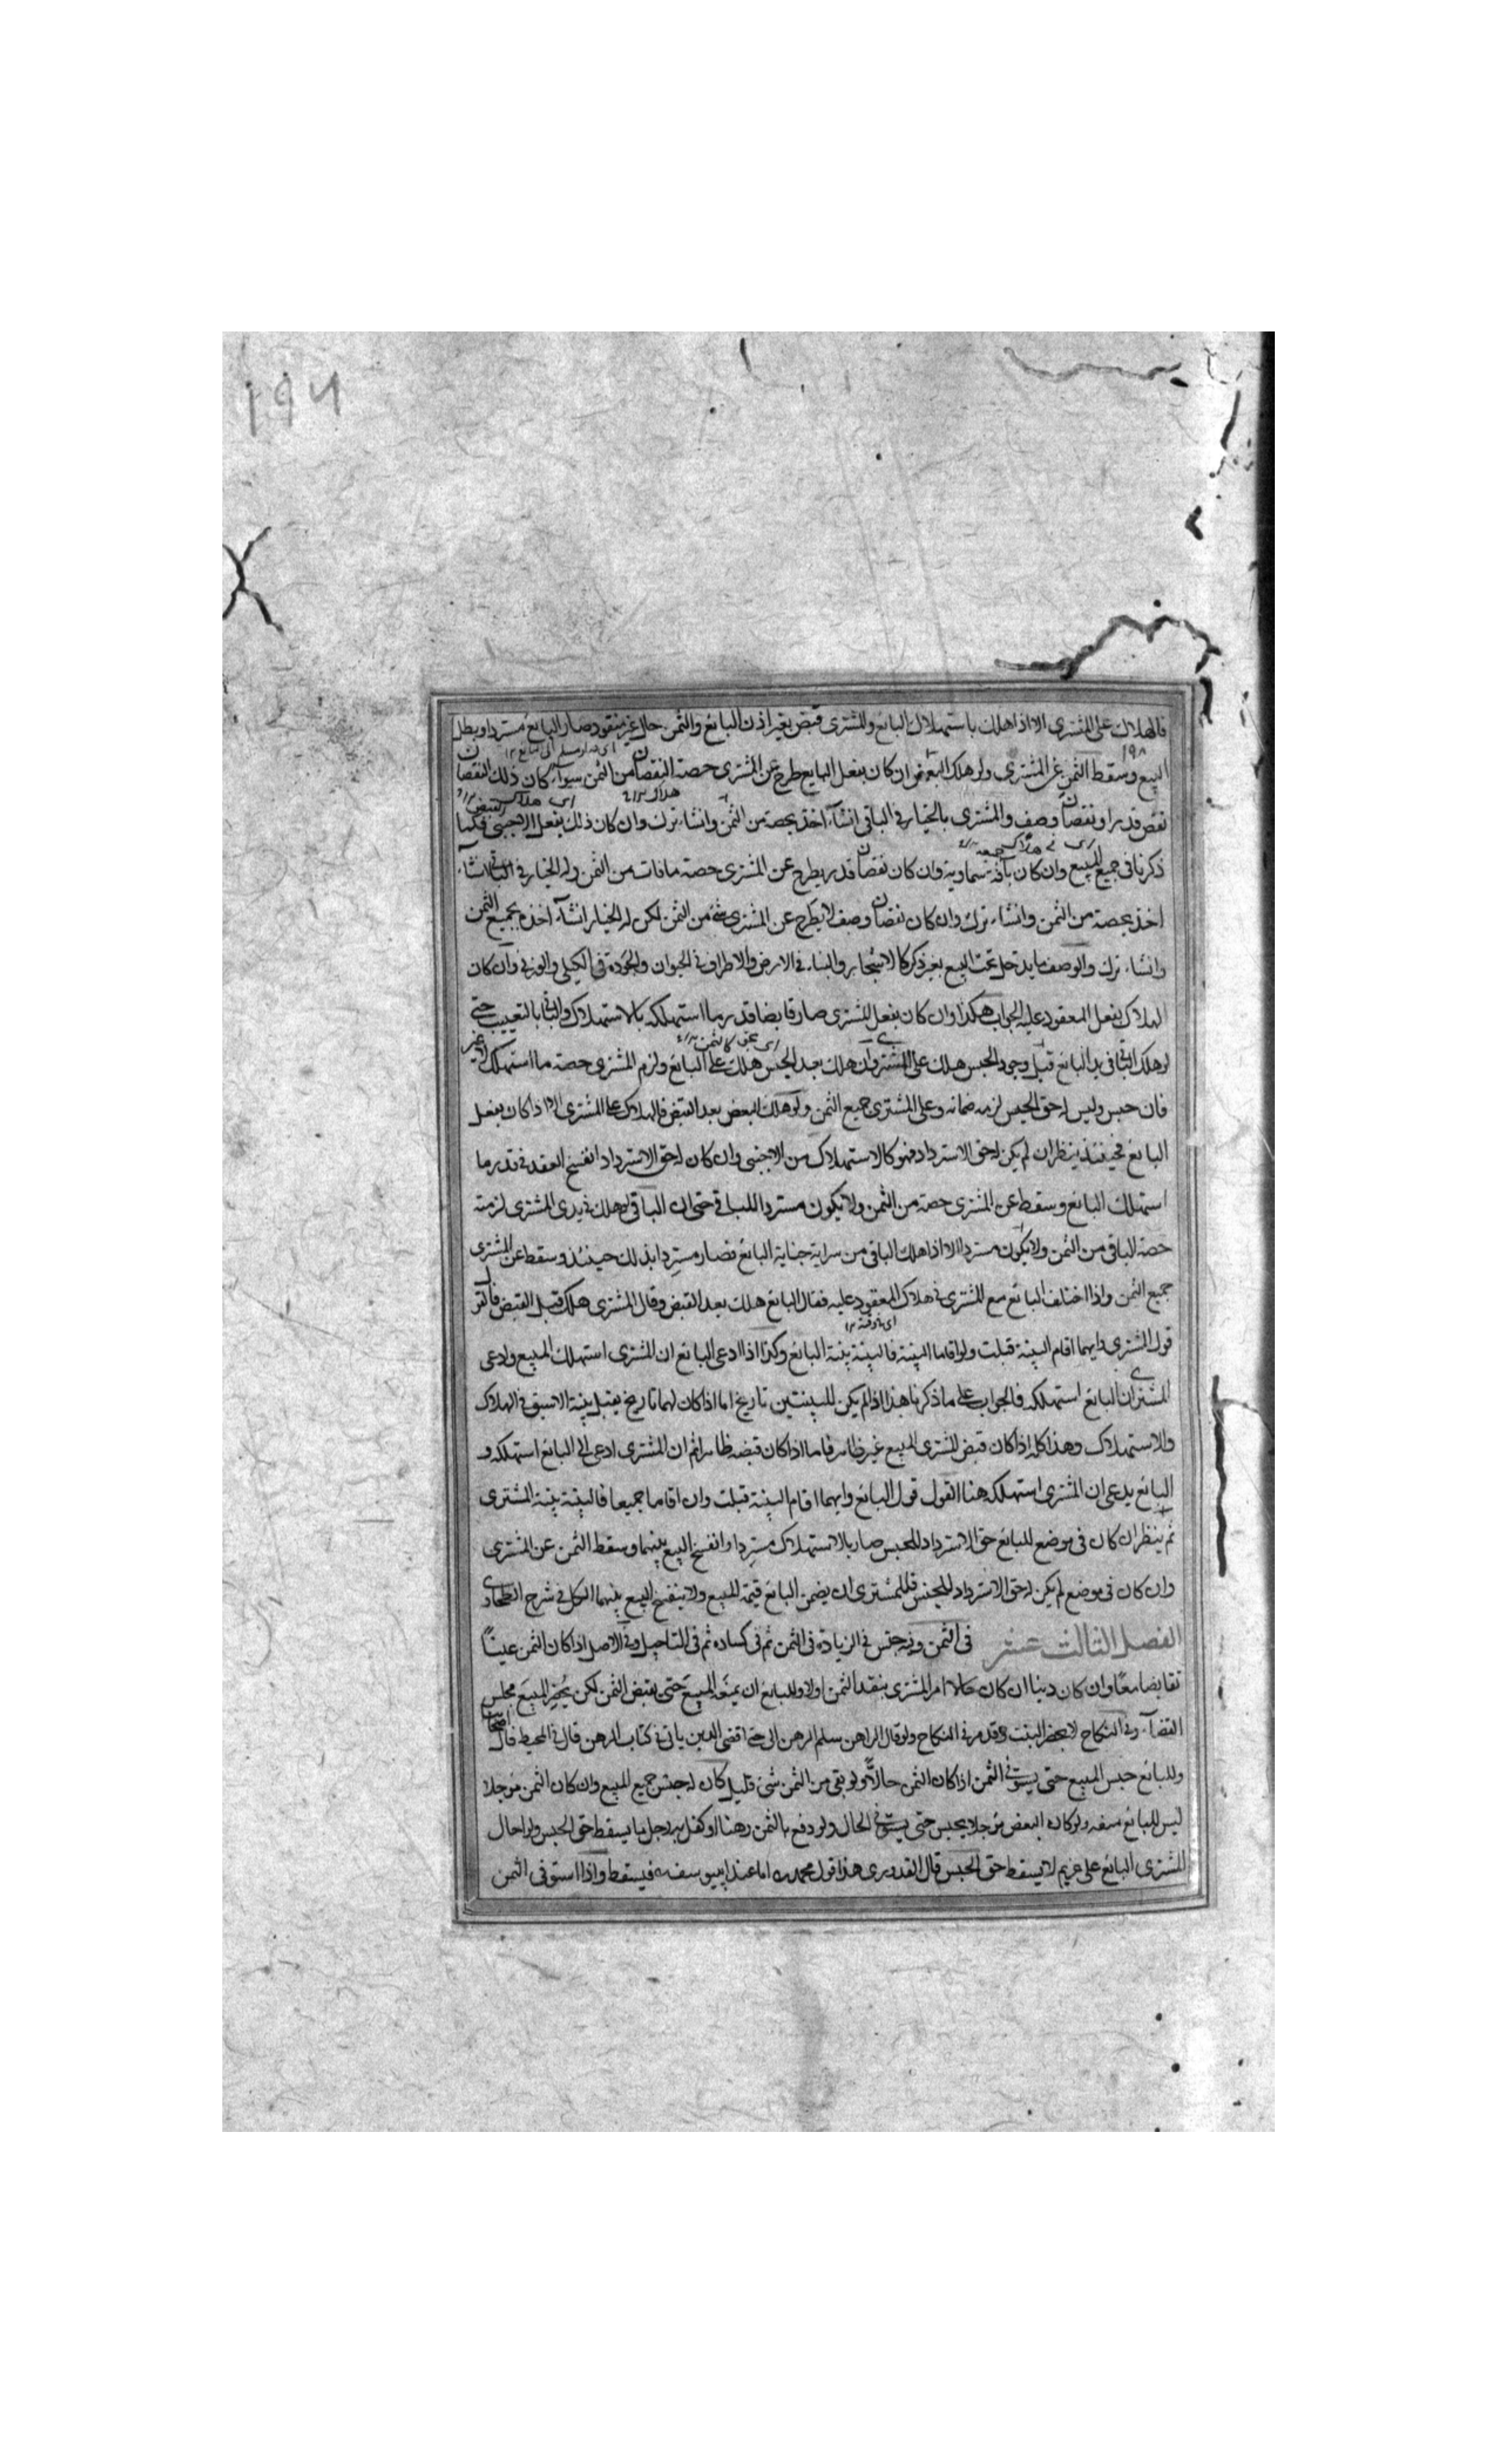 ١٩٨
فالهلاك على المشتري الا اذا هلك باستهلاك البائع والمشترى قبض بغير اذن البائع والثمن حال غير منقود صار البائع مستردا وبطل
البيع وسقط الثمن عن المشتري ولو هلك البعض فان كان بفعل البايع طرح عن المشترى حصة النقصان من الثمن سواء كان ذلك النقصان
نقص قدر او نقصان وصف والمشترى بالخيار في الباقى ان شآء اخذ بحصته من الثمن وان شاء ترك وان كان ذلك بفعل الاجنبى فكما
ذكرنا فى جميع المبيع وان كان بآفة سماوية وان كان نقصان قدر يطرح عن المشترى حصة ما فات من الثمن وله الخيار في الباقى ان شاء
اخذ بحصته من الثمن وان شاء ترك وان كان نقصان وصف لا يطرح عن المشترى شئ من الثمن لكن له الخيار ان شآء اخذه بجميع الثمن
وان شاء ترك والوصف ما يدخل تحت البيع بغير ذكر كالاشجار والبناء في الارض والاطراف في الحيوان والجودة في الكيلى والوزنى وان كان
الهلاك بفعل المعقود عليه الجواب هكذا وان كان بفعل المشترى صار قابضا قدر ما استهلكه بالاستهلاك والباقى بالتعييب حتى
لو هلك الباقى في يد البائع قبل وجود الحبس هلك على المشترى وان هلك بعد الحبس هلك على البائع ولزم المشترى حصة ما استهلك لا غير
فان حبس وليس له حق الحبس لزمه ضمانه وعلى المشترى جميع الثمن ولو هلك البعض بعد القبض فالهلاك على المشترى الا اذا كان بفعل
البائع فحينئذ ينظر ان لم يكن له حق الاسترداد فهو كالاستهلاك من الاجنبى وان كان له حق الاسترداد انفسخ العقد في قدر ما
استهلك البائع وسقط عن المشترى حصته من الثمن ولا يكون مستردا للباقى حتى ان الباقى لو هلك في يدى المشترى لزمته
حصة الباقى من الثمن ولا يكون مستردا الا اذا هلك الباقى من سراية جناية البائع فصار مستردا بذلك حينئذ وسقط عن المشترى
جميع الثمن واذا اختلف البائع مع المشترى في هلاك المعقود عليه فقال البائع هلك بعد القبض وقال المشترى هلك قبل القبض فالقول
قول المشترى وايهما اقام البينة قبلت ولو اقاما البينة فالبينة بينة البائع وكذا اذا ادعى البائع ان المشترى استهلك المبيع وادعى
المشترى ان البائع استهلكه فالجواب على ما ذكرنا هذا اذا لم يكن للبينتين تاريخ اما اذا كان لهما تاريخ يقبل بينة الاسبق في الهلاك
والاستهلاك وهذا كله اذا كان قبض المشترى المبيع غير ظاهر فاما اذا كان قبضه ظاهرا ثم ان المشترى ادعى ان البائع استهلكه و
البائع يدعى ان المشترى استهلكه هنا القول قول البائع وايهما اقام البينة قبلت وان اقاما جميعا فالبينة بينة المشترى
ثم ينظر ان كان في موضع للبائع حق الاسترداد للحبس صار بالاستهلاك مستردا وانفسخ البيع بينهما وسقط الثمن عن المشترى
وان كان في موضع لم يكن له حق الاسترداد للحبس فللمشترى ان يضمن البائع قيمة المبيع ولا ينفسخ البيع بينهما الكل في شرح الطحاوى
الفصل الثالث عشر في الثمن وفيه حبس في الزيادة في الثمن ثم في كساده ثم في التاجيل وفي الاصل اذا كان الثمن عينًا
تقابضا معًا وان كان دينا ان كان حالا امر المشترى بنقد الثمن اولا وللبائع ان يمنع المبيع حتى يقبض الثمن لكن يحضر المبيع مجلس
القضآء وفي النكاح لا يحضر البنت وقد مر في النكاح ولو قال الراهن سلم الرهن الى حتى اقضى الدين ياتى في كتاب الرهن قال في المحيط قال اصحابنا
وللبائع حبس المبيع حتى يستوفى الثمن اذا كان الثمن حالًا ولو بقى من الثمن شئ قليل كان له حبس جميع المبيع وان كان الثمن مؤجلا
ليس للبائع منعه ولو كان البعض مؤجلا يحبس حتى يستوفى الحال ولو دفع بالثمن رهنا او كفل به رجل ما يسقط حق الحبس ولو احال
المشترى البائع على غريم لا يسقط حق الحبس قال القدورى هذا قول محمد اما عند ابى يوسف فيسقط واذا استوفى الثمن